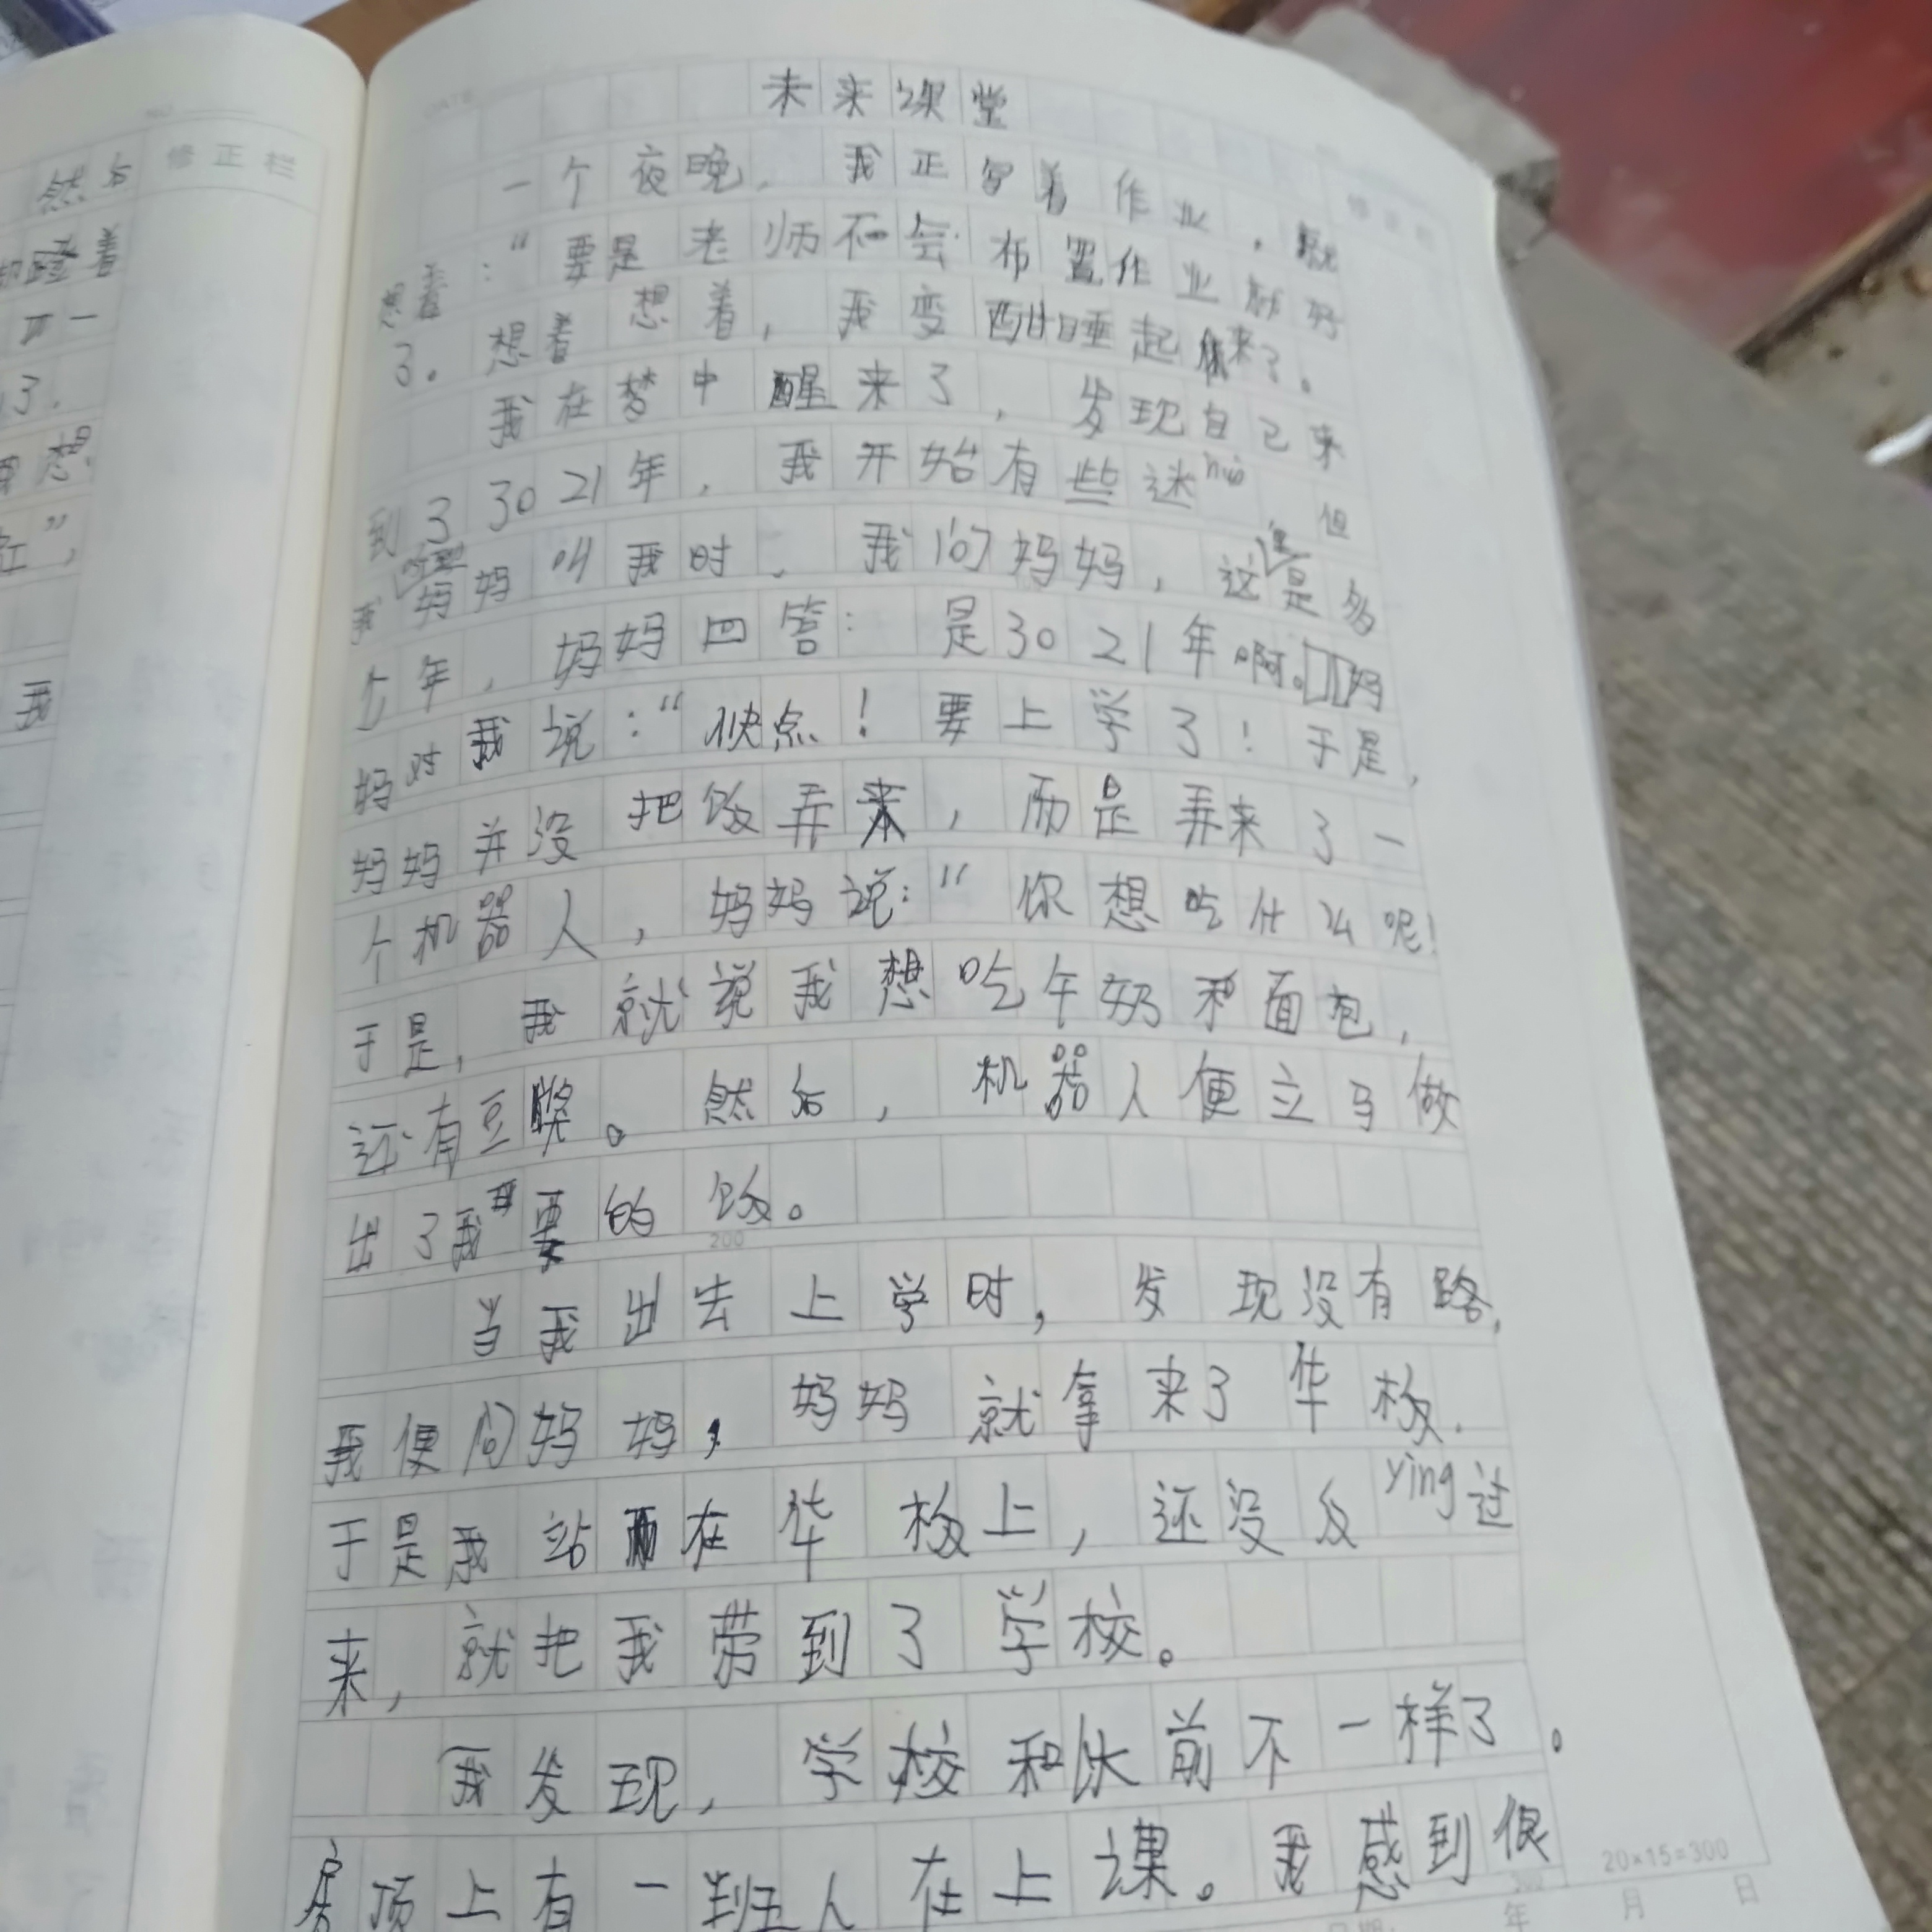 未来课堂
一个夜晚，我正写着作业，就
想着：“要是老师不会布置作业就好
了。想着想着，我变酣睡起来了。
我在梦中醒来了，发现自己来
到了3021年，我开始有些迷huò，但
我妈妈叫我时，我问妈妈，这是多
个年，妈妈回答：是3021年啊。妈
妈对我说：“快点！要上学了！于是，
妈妈并没把饭弄来，而是弄来了一
个机器人，妈妈说：“你想吃什么呢！
于是，我就说我想吃牛奶和面包，
还有豆浆。然后，机器人便立马做
出了我要的饭。
200
当我出去上学时，发现没有路，
我便问妈妈，妈妈就拿来了华板.
于是我站在华板上，还没反yìng过
来，就把我带到了学校。
我发现，学校和以前不一样了。
房顶上有一班人在上课。我感到很
300
20×15=300
年 月 日
修正栏
然后
着
一
了.
想
”，
我
修正栏